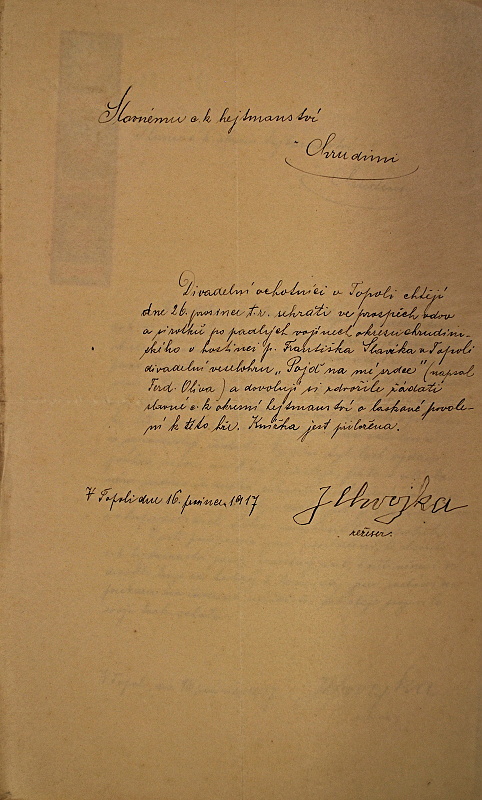 Slavnému c. k hejtmanství
v Chrudimi
Divadelní ochotníci v Topoli chtějí
dne 26. prosince t. r. sehráti ve prospěch vdov
a sirotků po padlých vojínech okresu chrudim-
ského v hostinci p. Františka Slavíka v Topoli
divadelní veselohru „Pojď na mé srdce" (napsal
Ferd. Oliva) a dovolují si zdvořile žádati
slavné c. k okresní hejtmanství o laskavé povole-
ní k této hře. Knížka jest přiložena.
V Topoli dne 16. prosince 1917
J Chvojka
režiser.